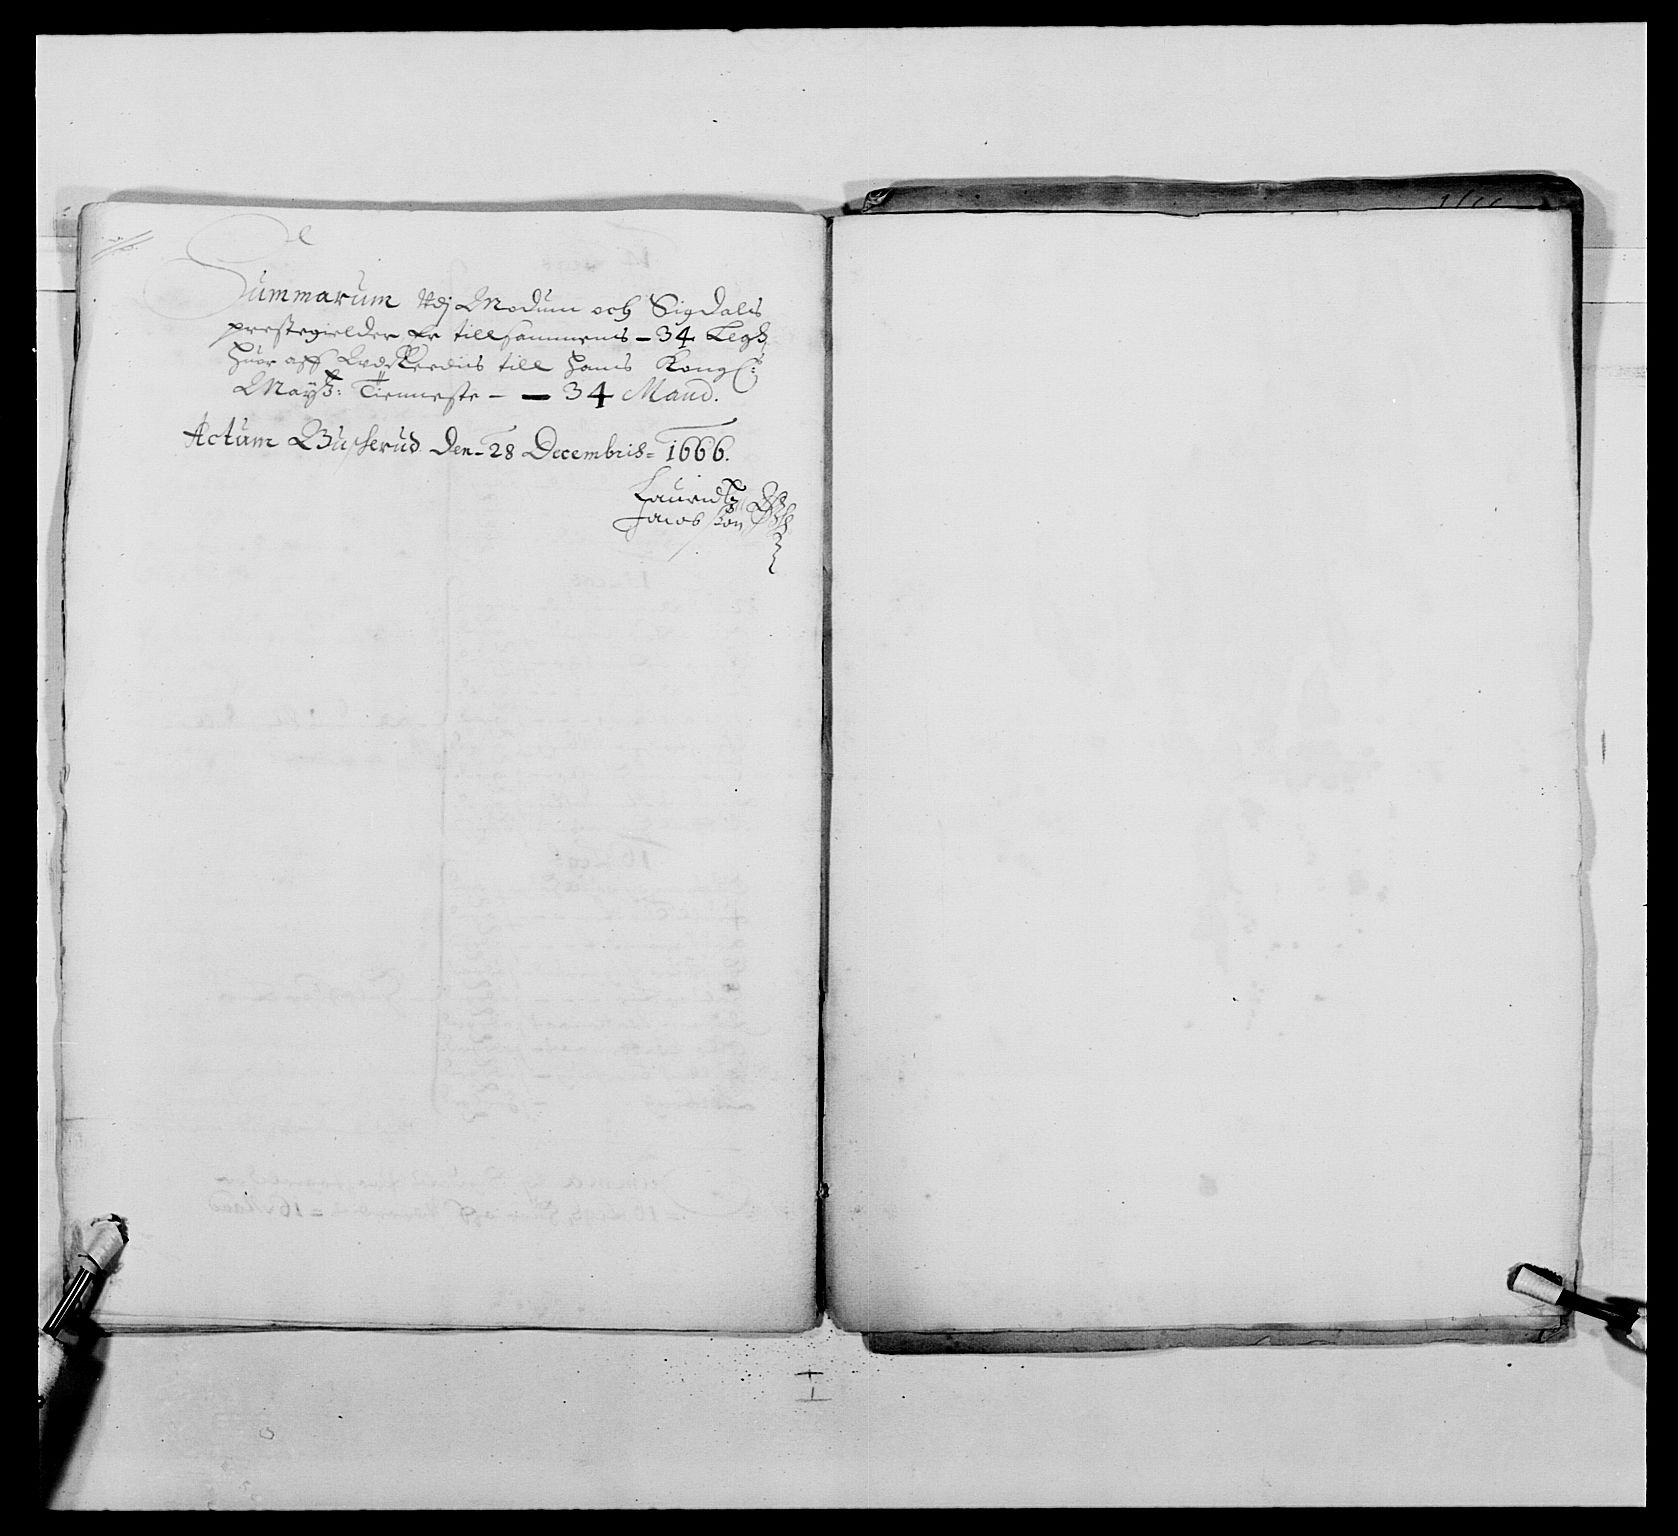 Summarum Udj Modum och Sigdals
prestegielder Er tillsammens – 34 Legh
huor aff Udskreffis till Hans Kongl:
Mayss: Tienneste – – 34 Mand.
Actum Buscherud den 28 Decembris 1666.
Lauridtz
Jacobssøn